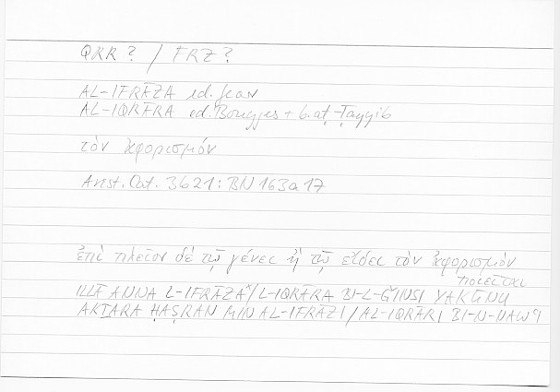 QRR ? / FRZ ?
AL-IFRĀZA ed. Jear
AL-IQRĀRA ed. Bouyges + b. aṭ-Ṭayyib
τὸν ἀφορισμόν
Arist. Cat. 3b21 : BN 163a17
ἐπὶ πλεῖον δὲ τῷ γένει ἢ τῷ εἴδει τὸν ἀφορισμὸν
ποιεῖται
ILLĀ ANNA L-IFRĀZA / L-IQRĀRA BI-L-ĞINSI YAKŪNU
AKṮARA ḤAṢRAN MIN AL-IFRĀZI / AL-IQRĀRI BI-N-NAWʿI